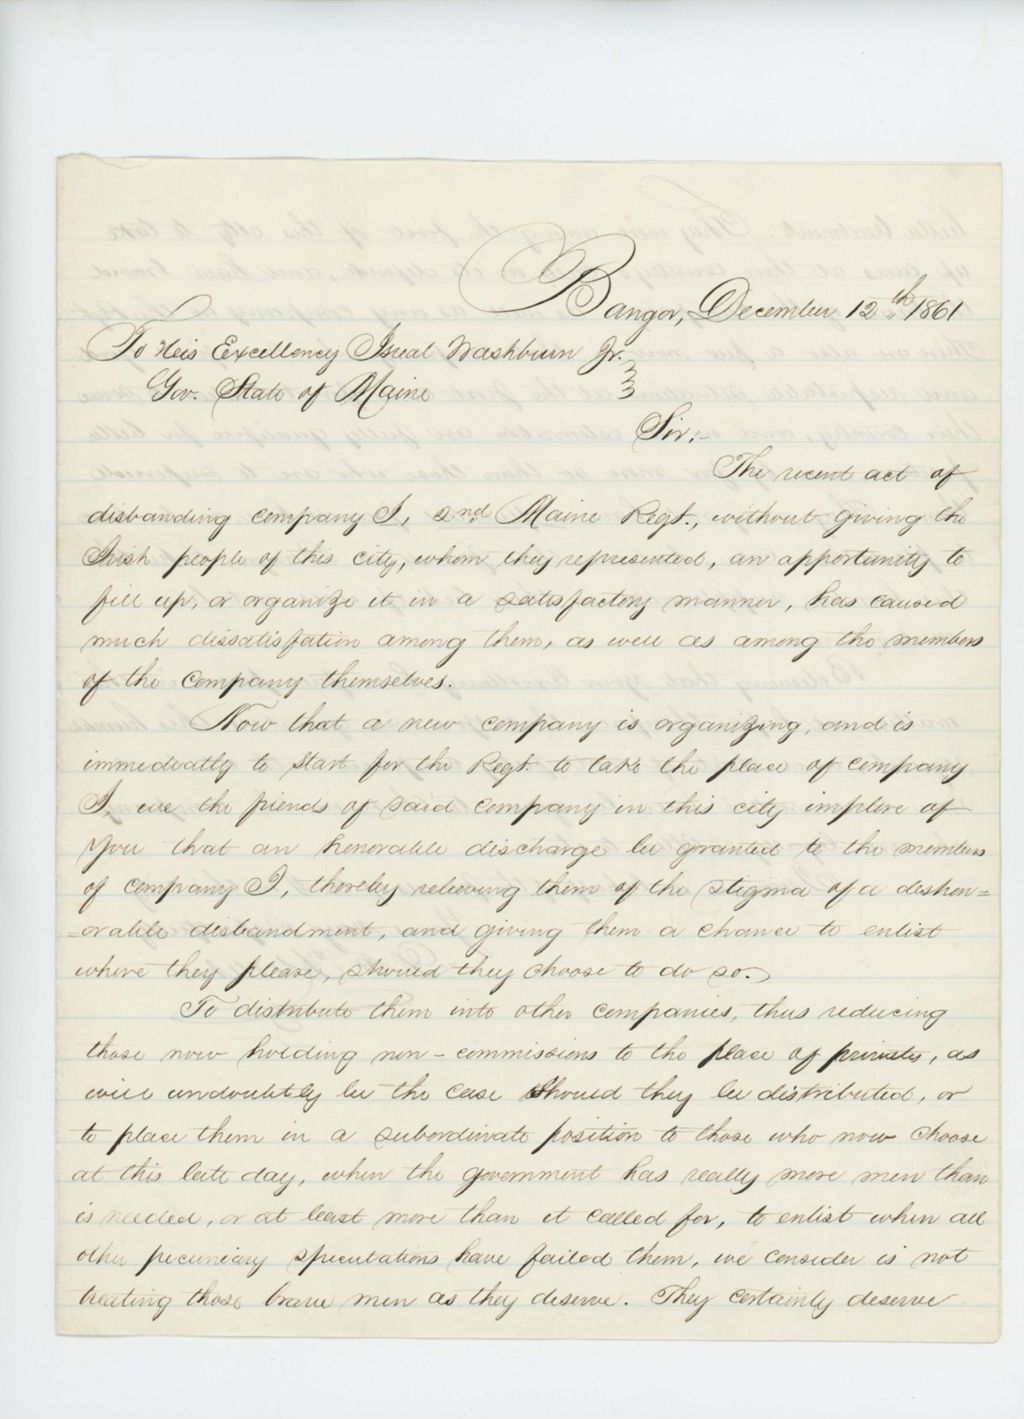 Bangor, December 12th 1861
To His Excellency Isreal Washburn Jr.
Gov. State of Maine
Sir:-
The recent act of
disbanding company I, 2nd Maine Regt., without giving the
Irish people of this city, whom they represented, an opportunity to
fill up, or organize it in a satisfactory manner, has caused
much dissatisfation among them, as well as among the members
of the company themselves.
Now that a new company is organizing, and is
immediatly to start for the Regt. to take the place of company
I, we the friends of said company in this city implore of
you that an honorable discharge be granted to the members
of company I, thereby relieving them of the stigma of a dishon=
=orable disbandment, and giving them a chance to enlist
where they please, should they choose to do so.
To distribute them into other companies, thus reducing
those now holding non-commissions to the place of privates, as
will undoubtibly be the case should they be distributed, or
to place them in a subordinate position to those who now choose
at this late day, when the government has really more men than
is needed, or at least more than it called for, to enlist when all
other pecuniary speculations have failed them, we consider is not
treating those brave men as they deserve. They certainly deserve